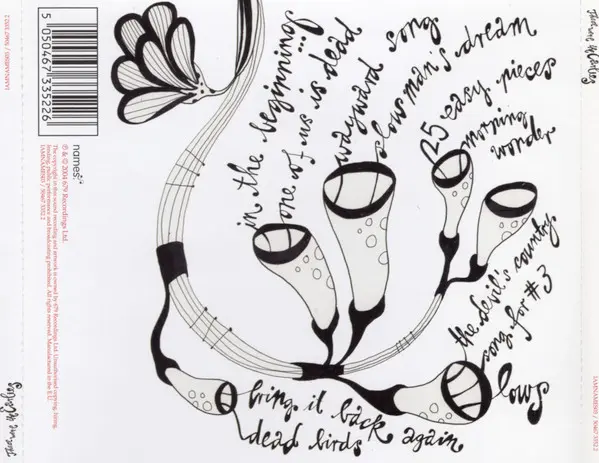 5 050467 335226
names:
℗ & © 2004 679 Recordings Ltd.
The copyright in this sound recording and artwork is owned by 679 Recordings Ltd. Unauthorised copying, hiring,
lending, public performance and broadcasting prohibited. All rights reserved. Manufactured in the E.U.
in the beginning...
one of us is dead
wayward song
slow man's dream
25 easy pieces
morning
wonder
the devil's country
song for #3
lows
bring it back again
dead birds
These were the Earlies
These were the Earlies